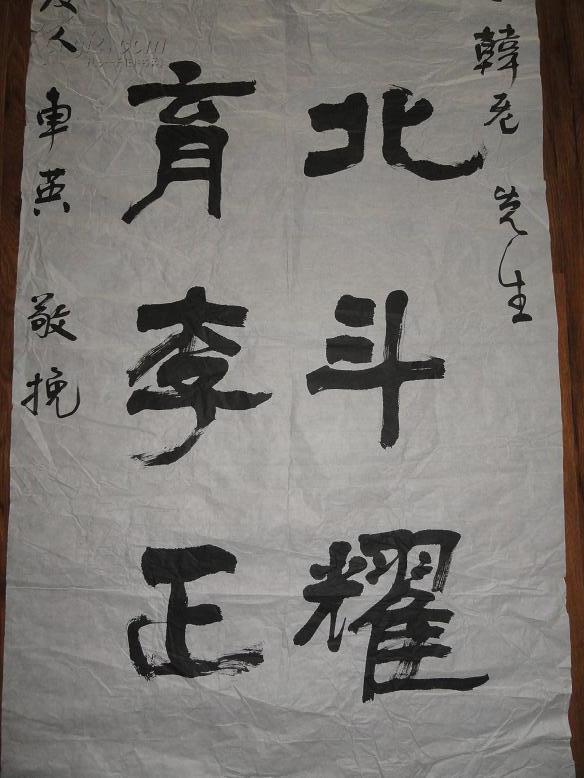 韓老先生
北斗耀
育李正
人 車英 敬挽